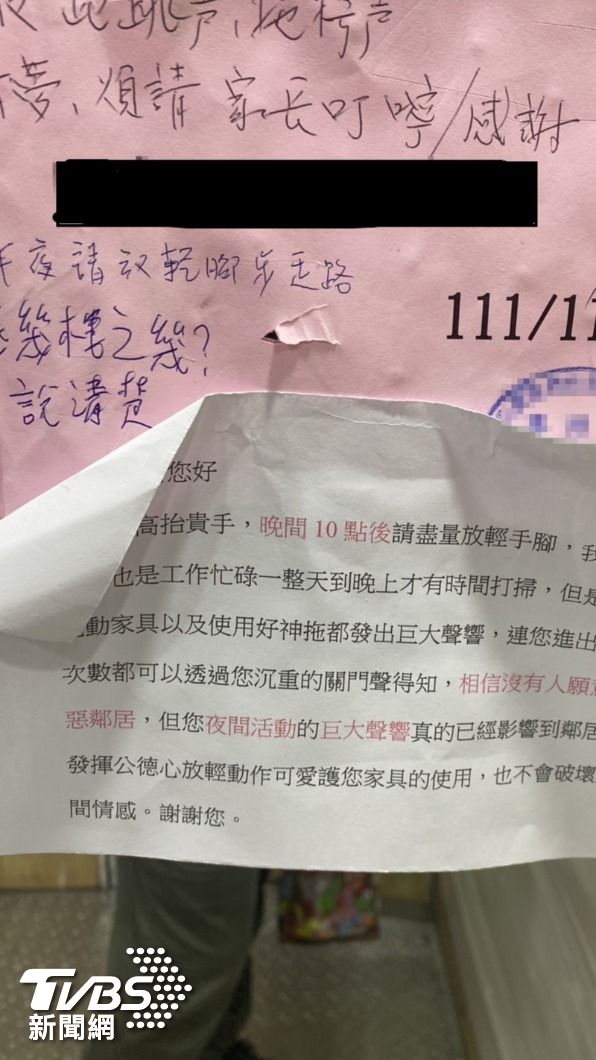 跳声,拖椅声
夢、煩請 家長叮嚀/感謝
夜請放輕腳步走路
幾樓之幾?
說清楚
111/11
您好
高抬貴手,晚間 10 點後請盡量放輕手腳,我
也是工作忙碌一整天到晚上才有時間打掃,但是
動家具以及使用好神拖都發出巨大聲響,連您進出
次數都可以透過您沉重的關門聲得知,相信沒有人願意
惡鄰居,但您夜間活動的巨大聲響真的已經影響到鄰居
發揮公德心放輕動作可愛護您家具的使用,也不會破壞
間情感。謝謝您。
TVBS
新聞網